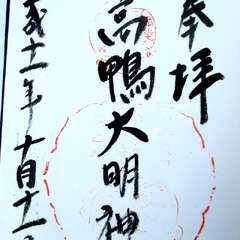 奉拝
高鴨大明神
成十一年十月十一